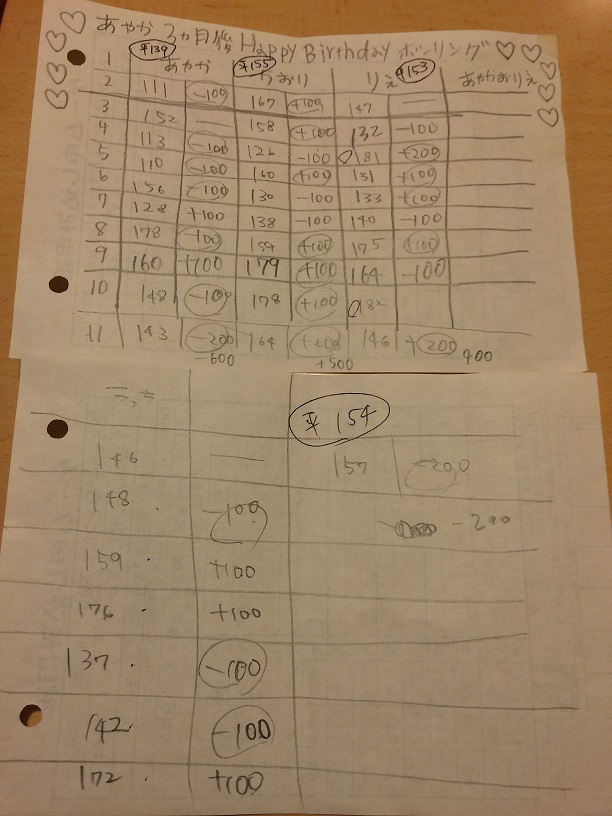 あやか 3ヵ月後 Happy Birthday ボーリング
1 平139 あやか 平155 かおり りえ 平153 あやかおりえ
2 111 -100 167 +100 147 —
3 152 — 158 +100 132 -100
4 113 -100 126 -100 181 +200
5 110 -100 160 +100 131 +100
6 156 -100 130 -100 133 +100
7 128 +100 138 -100 140 -100
8 178 -100 159 +100 175 +100
9 160 +100 179 +100 164 -100
10 148 -100 178 +100 182
11 143 -200 164 +200 146 +200
-600 +500 400
平 154
146 — 157 -200
148 -100 -200
159 +100
176 +100
137 -100
142 -100
172 +100